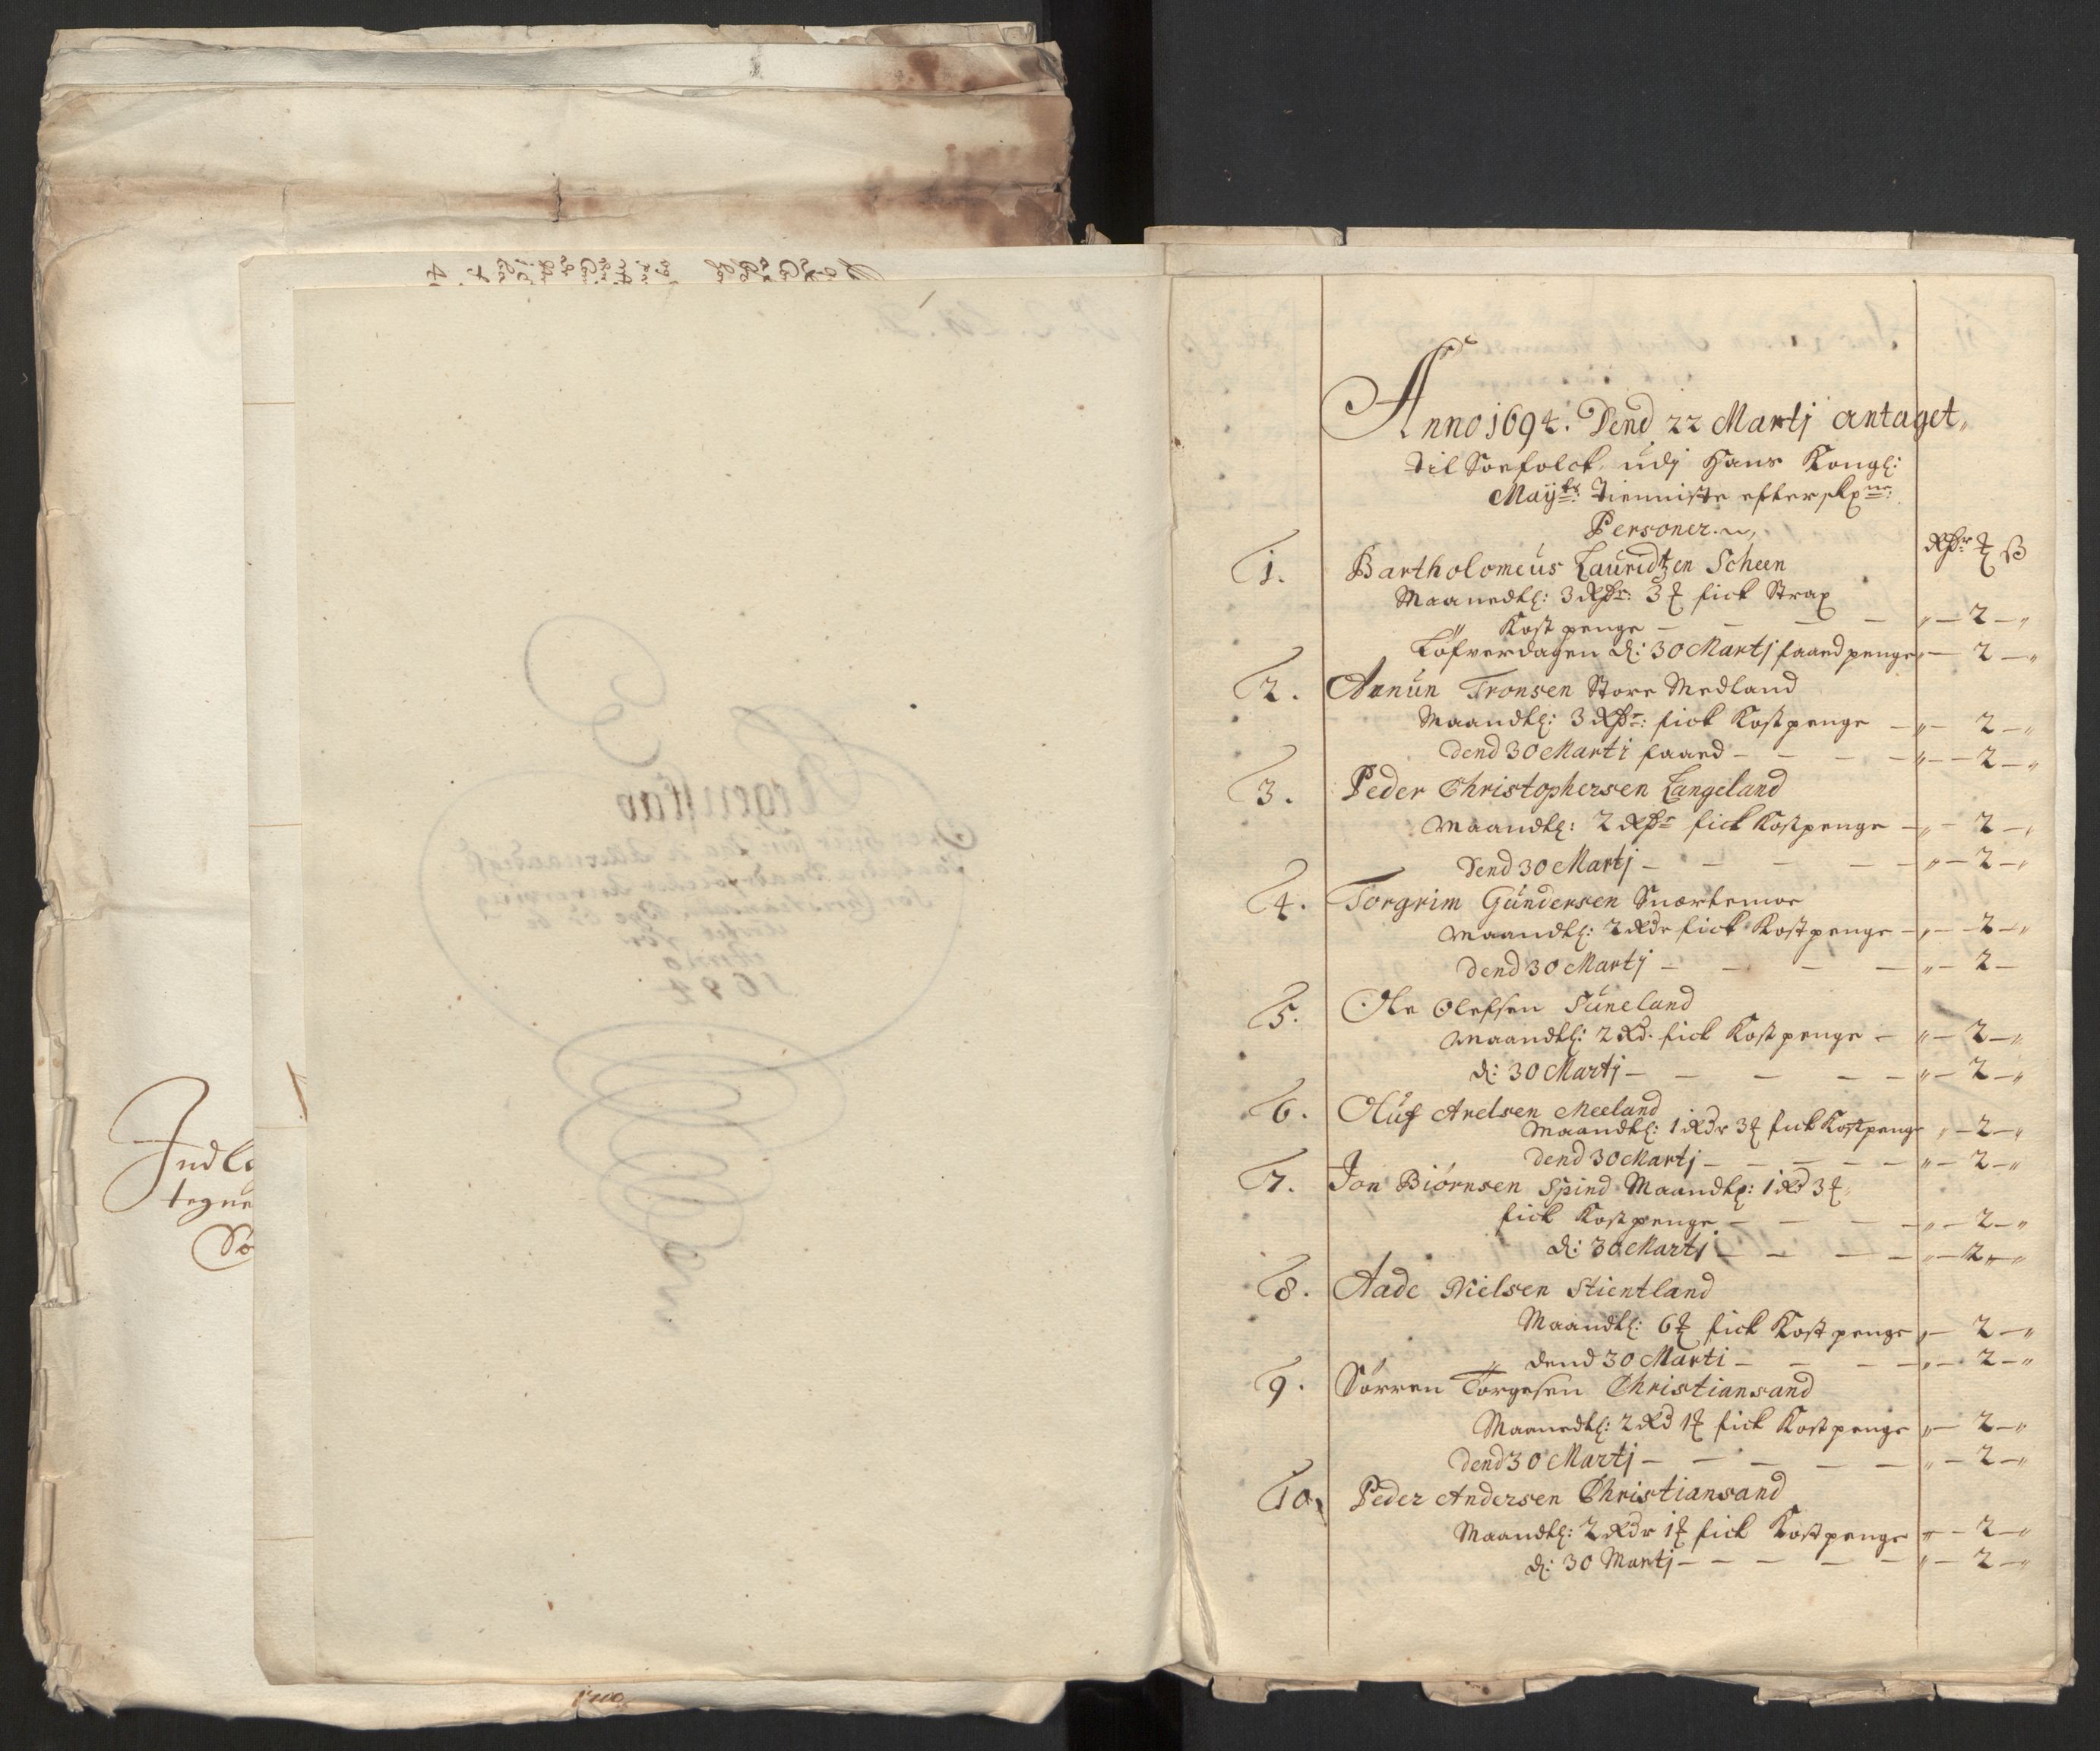 Indlæ
tegne
Sø
Anno 1694. Dend 22 Martj antaget,
til Soefolck udj Hans Kongl:
Maÿts: Tienniste efterskrne:
Personer.
Rdr ꝣ ß
1. Bartholomeus Lauridtzen Scheen
Maanedhl: 3 Rdr: 3 ꝣ fick Strax
Kostpenge — — — — „ — 2 — „
Løfverdagen d: 30 Martj faaed penge „ — 2 — „
2. Annun Tronsen Store Medland
Maandhl: 3 Rdr: fick Kostpenge — „ — 2 — „
Dend 30 Marti faaed — — — — „ — 2 — „
3. Peder Christophersen Langeland
Maandhl: 2 Rdr fick Kostpenge — „ — 2 — „
Dend 30 Martj — — — — — „ — 2 — „
4. Torgrim Gundersen Snartemoe
Maandhl: 2 Rdr fick Kostpenge — „ — 2 — „
Dend 30 Martj — — — — „ — 2 —
5. Ole Olefsen Tuneland
Maandhl: 2 Rd. fick Kostpenge — „ — 2 — „
d: 30 Martj — — — — — „ — 2 — „
6. Oluf Arelsen Meeland
Maandhl: 1 Rdr 3 ꝣ fick Kostpenge „ — 2 — „
Dend 30 Martj — — — — — „ — 2 — „
7. Jon Biørnsen Spind Maandhl: 1 Rd 3 ꝣ
fick Kostpenge — — — — „ — 2 — „
d: 30 Martj — — — — „ — 2 — „
8. Aade Nielsen Stientland
Maandhl: 6 ꝣ fick Kostpenge „ — 2 — „
„ Dend 30 Marti — — — — „ — 2 — „
9. Sørren Torgesen Christiansand
Maanedhl: 2 Rd 1 ꝣ fick Kostpenge „ — 2 — „
Dend 30 Martj — — — — — „ — 2 — „
10. Peder Andersen Christiansand
Maandhl: 2 Rdr 1 ꝣ fick Kostpenge „ — 2 — „
d: 30 Martj — — — — — „ — 2 — „